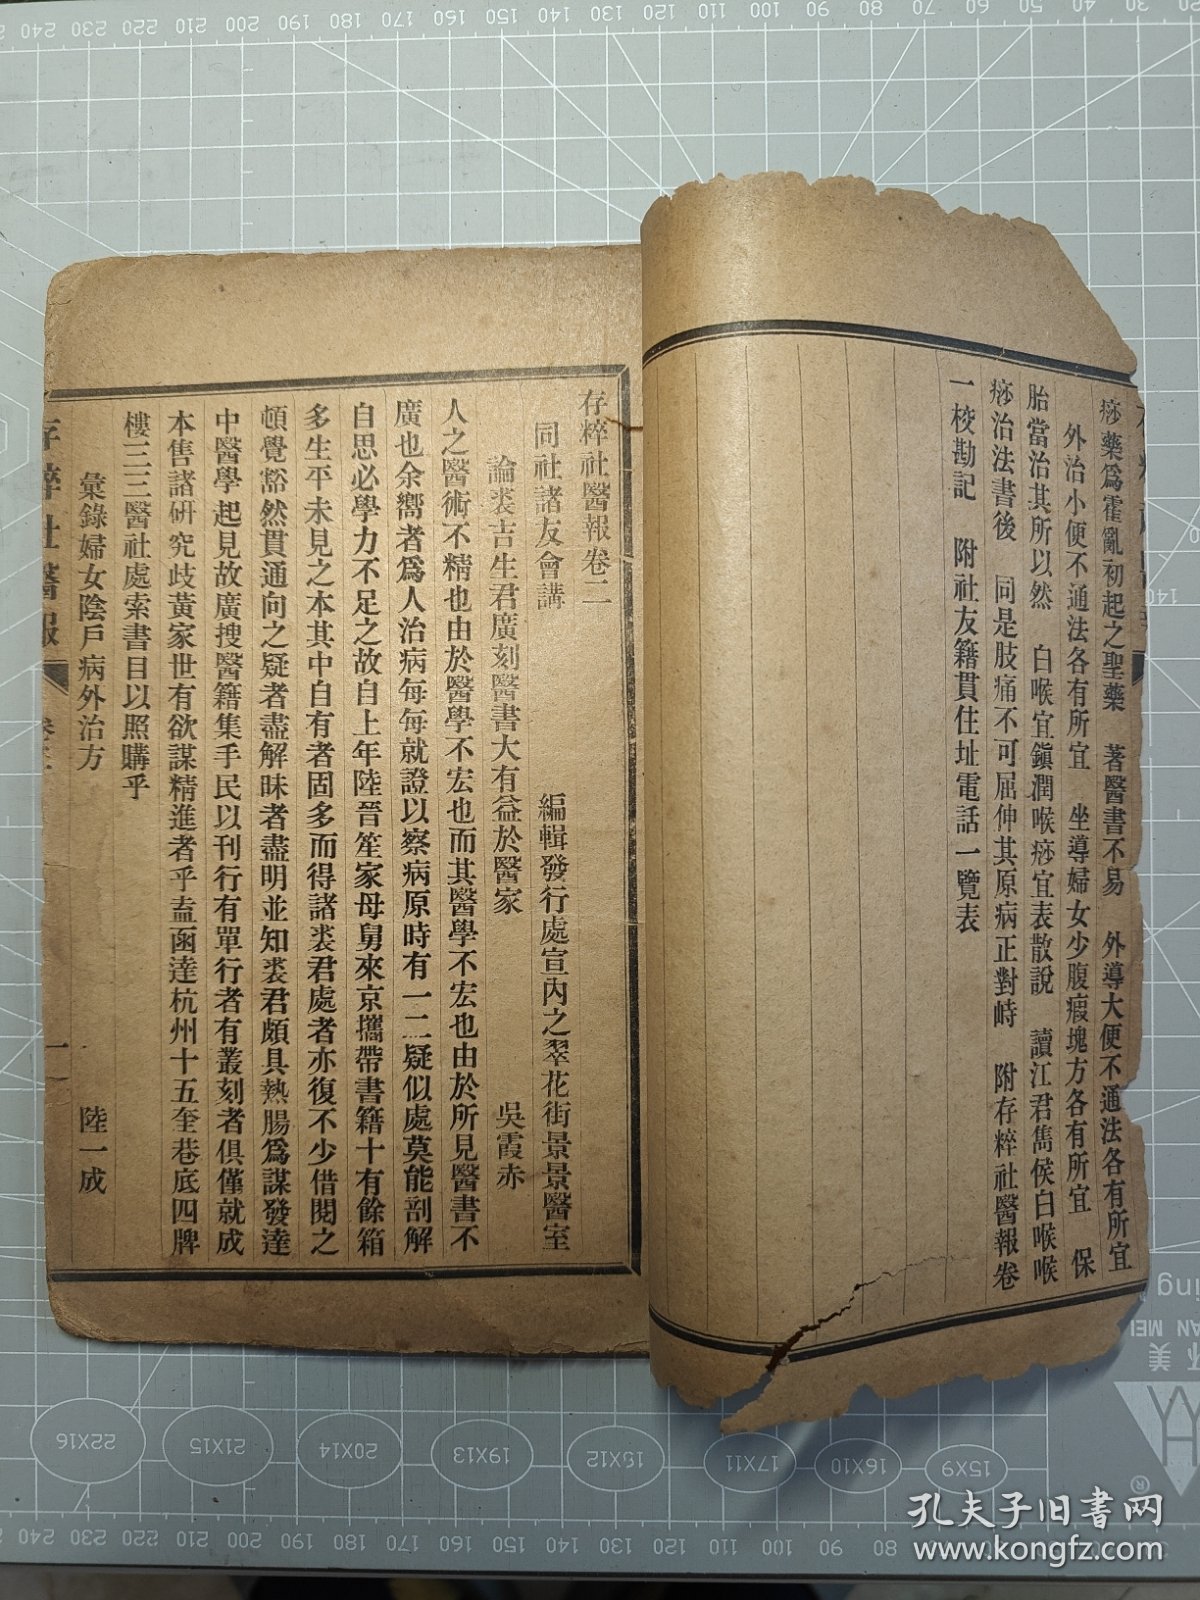 痧藥爲霍亂初起之聖藥　著醫書不易　外導大便不通法各有所宜
外治小便不通法各有所宜　坐導婦女少腹瘕塊方各有所宜　保
胎當治其所以然　白喉宜鎭潤喉痧宜表散說　讀江君雋侯白喉喉
痧治法書後　同是肢痛不可屈伸其原病正對峙　附存粹社醫報卷
一校勘記　附社友籍貫住址電話一覽表
存粹社醫報卷二
同社諸友會講　編輯發行處宣內之翠花街景景醫室
論裘吉生君廣刻醫書大有益於醫家　吳霞赤
人之醫術不精也由於醫學不宏也而其醫學不宏也由於所見醫書不
廣也余嚮者爲人治病每每就證以察病原時有一二疑似處莫能剖解
自思必學力不足之故自上年陸晉笙家母舅來京攜帶書籍十有餘箱
多生平未見之本其中自有者固多而得諸裘君處者亦復不少借閱之
頓覺豁然貫通向之疑者盡解昧者盡明並知裘君頗具熱腸爲謀發達
中醫學起見故廣搜醫籍集手民以刊行有單行者有叢刻者俱僅就成
本售諸研究歧黃家世有欲謀精進者乎盍函達杭州十五奎巷底四牌
樓三三醫社處索書目以照購乎
彙錄婦女陰戶病外治方　陸一成
存粹社醫報　卷二　一
孔夫子旧书网
www.kongfz.com